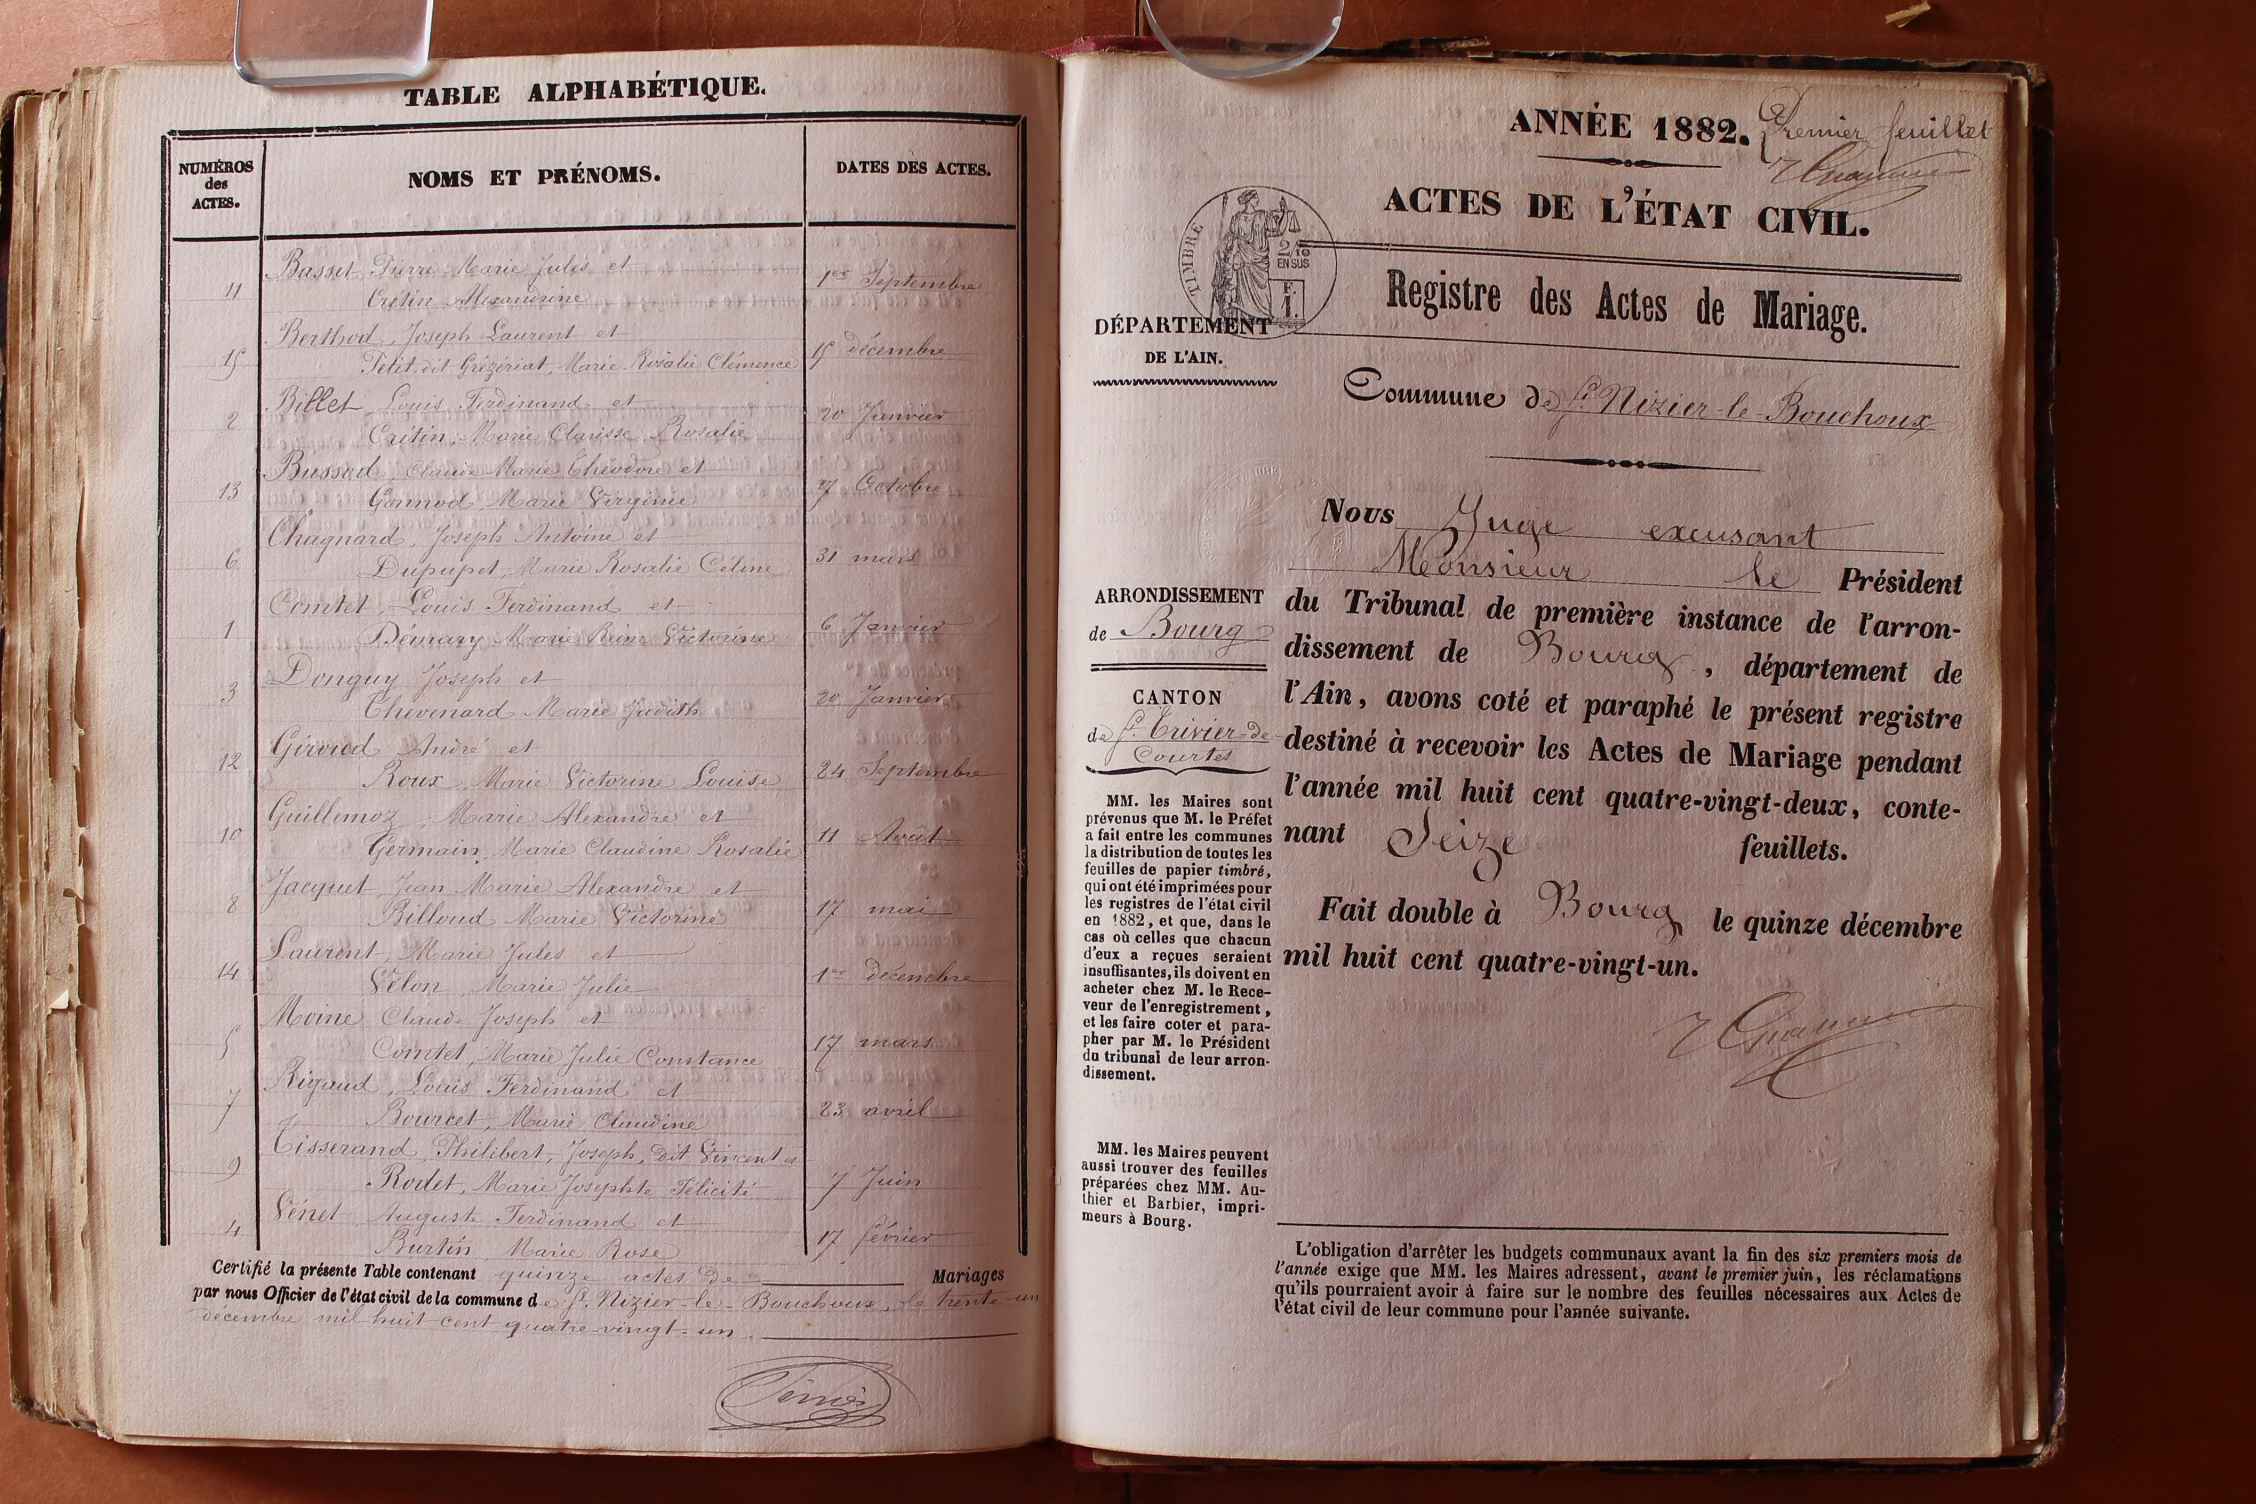 TABLE ALPHABÉTIQUE.
NUMÉROS
des
ACTES.
NOMS ET PRÉNOMS.
DATES DES ACTES.
11 Basset Pierre Marie Jules et 1er Septembre
Crétin Alexandrine
15 Berthod, Joseph Laurent et 15 décembre
Petit dit Grézériat, Marie Rosalie Clémence
2 Billet Louis Ferdinand et 20 Janvier
Crétin, Marie Clarisse Rosalie
13 Bussod, Claude Marie Théodore et 27 Octobre
Gonnod Marie Virginie
6 Chagnard, Joseph Antoine et 31 mars
Dupupet, Marie Rosalie Céline
1 Comtet, Louis Ferdinand et 6 Janvier
Marie Reine Victorine
3 Donguy Joseph et 20 Janvier
Chevenard Marie Judith
12 Giroud André et 24 Septembre
Roux, Marie Victorine Louise
10 Guillemoz, Marie Alexandre et 11 Août
Germain, Marie Claudine Rosalie
8 Jacquet Jean Marie Alexandre et 17 mai
Billoud Marie Victorine
14 Laurent, Marie Jules et 1er décembre
Vélon, Marie Julie
5 Moine Claude Joseph et 17 mars
Comtet, Marie Julie Constance
7 Rigaud, Louis Ferdinand et 23 avril
Bourcet, Marie Claudine
9 Tisserand, Philibert, Joseph, dit Vincent et 7 Juin
Rodet, Marie Josephte Félicité
4 Vénet Auguste Ferdinand et 17 février
Burtin Marie Rose
Certifié la présente Table contenant quinze actes de Mariages
par nous Officier de l'état civil de la commune de St. Nizier-le-Bouchoux, le trente-un
décembre mil huit cent quatre-vingt-un.
ANNÉE 1882.
Premier feuillet
ACTES DE L'ÉTAT CIVIL.
TIMBRE
2/10
EN SUS
F.
1.
Registre des Actes de Mariage.
DÉPARTEMENT
DE L'AIN.
Commune de St Nizier-le-Bouchoux
Nous Juge excusant
Monsieur le Président
du Tribunal de première instance de l'arron-
dissement de Bourg, département de
l'Ain, avons coté et paraphé le présent registre
destiné à recevoir les Actes de Mariage pendant
l'année mil huit cent quatre-vingt-deux, conte-
nant Seize feuillets.
Fait double à Bourg le quinze décembre
mil huit cent quatre-vingt-un.
ARRONDISSEMENT
de Bourg
CANTON
de St. Trivier-de-
Courtes
MM. les Maires sont
prévenus que M. le Préfet
a fait entre les communes
la distribution de toutes les
feuilles de papier timbré,
qui ont été imprimées pour
les registres de l'état civil
en 1882, et que, dans le
cas où celles que chacun
d'eux a reçues seraient
insuffisantes, ils doivent en
acheter chez M. le Rece-
veur de l'enregistrement,
et les faire coter et para-
pher par M. le Président
du tribunal de leur arron-
dissement.
MM. les Maires peuvent
aussi trouver des feuilles
préparées chez MM. Au-
thier et Barbier, impri-
meurs à Bourg.
L'obligation d'arrêter les budgets communaux avant la fin des six premiers mois de
l'année exige que MM. les Maires adressent, avant le premier juin, les réclamations
qu'ils pourraient avoir à faire sur le nombre des feuilles nécessaires aux Actes de
l'état civil de leur commune pour l'année suivante.